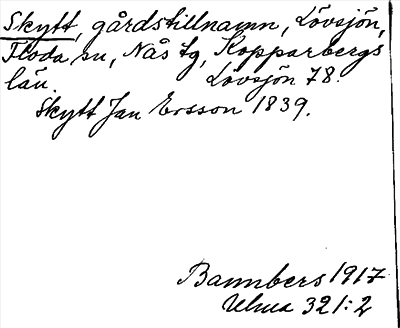 Skytt, gårdstillnamn, Lövsjön,
Floda sn, Nås tg, Kopparbergs
län. Lövsjön 78.
Skytt Jan Ersson 1839.
Bannbers 1917
Ulma 321:2